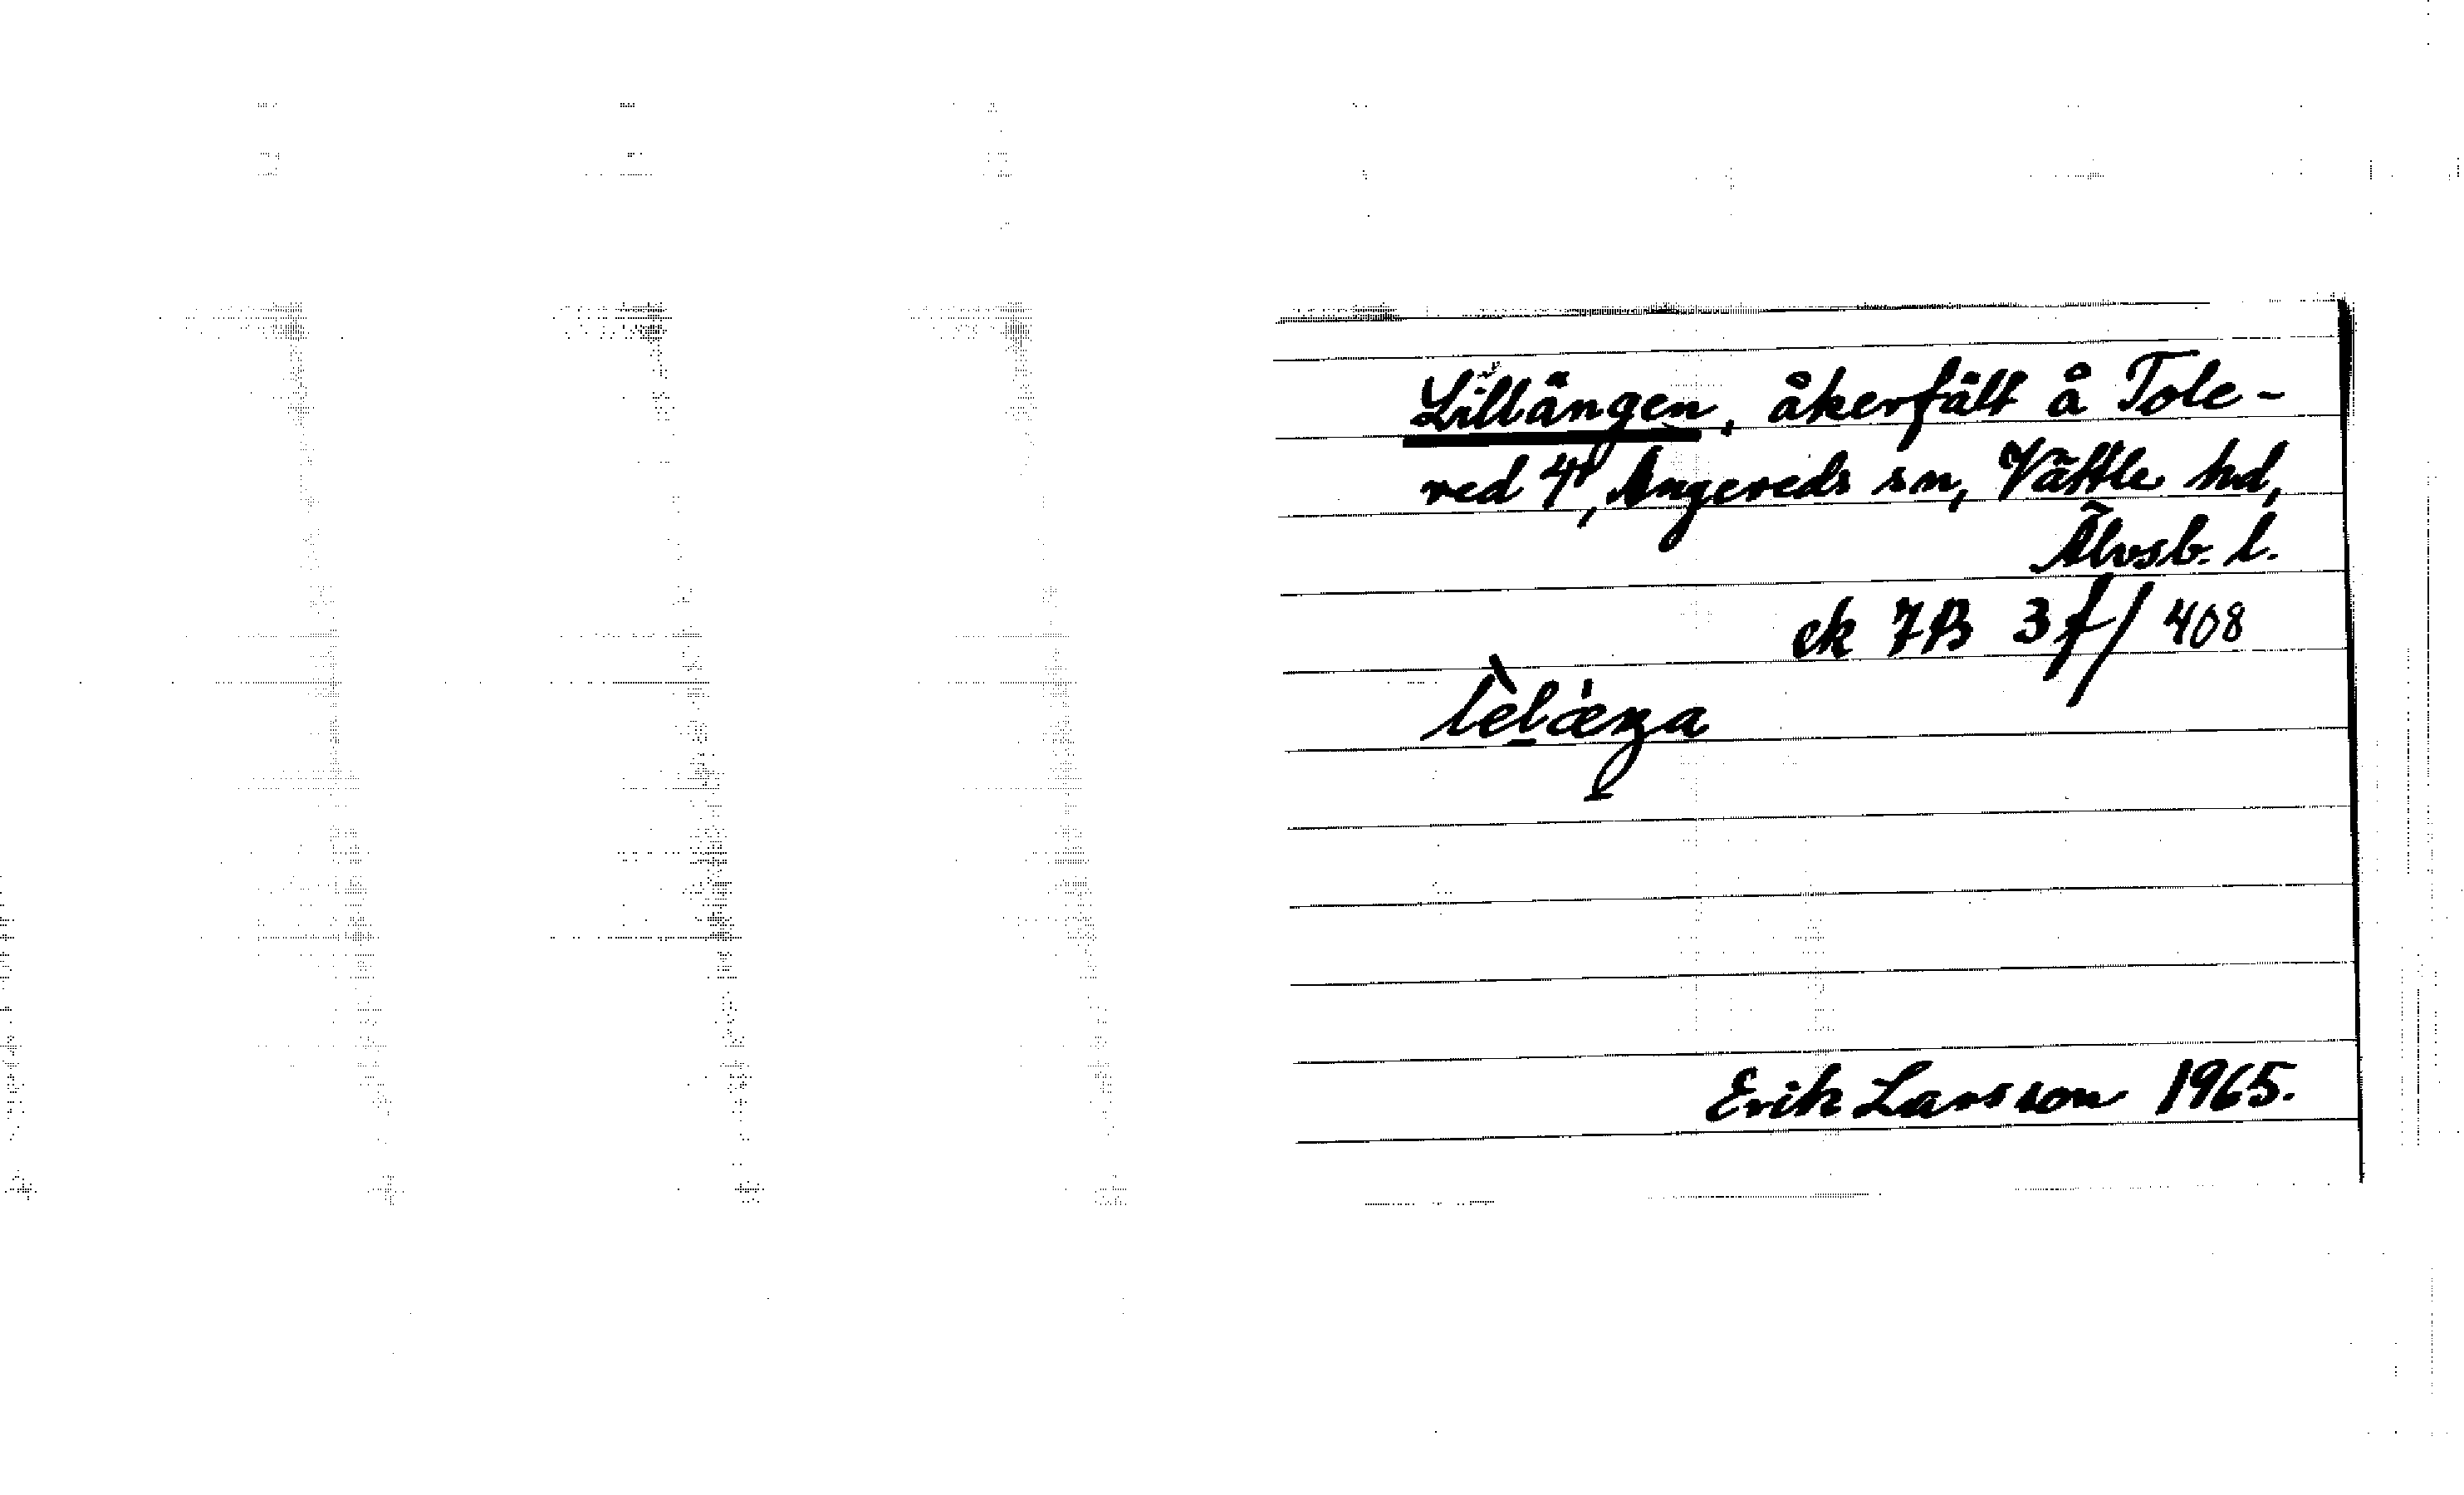 Lillängen, åkerfält å Tole-
red 4¹, Angereds sn, Vättle hd,
Älvsb. l.
ek 7B 3f/408
Erik Larsson 1965.